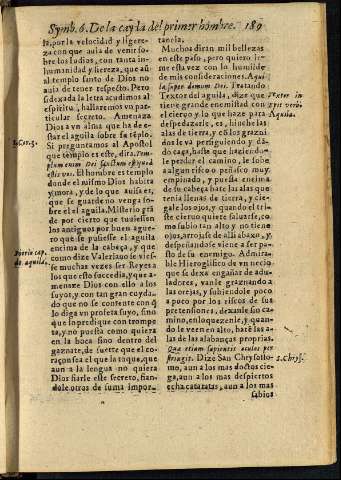 Symb. 6. De la cayda del primer hombre. 189
la, por la velocidad y ligere-
za con que auia de venir so-
bre los Iudios, con tanta in-
humanidad y fiereza, que aũ
al templo santo de Dios no
auia de tener respecto. Pero
si dexada la letra acudimos al
espiritu, hallaremos vn par-
ticular secreto. Amenaza
Dios a vn alma que ha de es-
tar el aguila sobre su tẽplo.
Si preguntamos al Apostol
que templo es este, dira. Tem-
plum enim Dei sanctum est quod
estis vos. El hombre es templo
donde el mismo Dios habita
y mora, y de lo que auisa es,
que se guarde no venga so-
bre el el aguila. Misterio grã
de por cierto que tuuiessen
los antiguos por buen ague-
ro que se pusiesse el aguila
encima de la cabeça, y que
como dize Valeriano se vies-
se muchas vezes ser Reyes a
los que esto succedia, y que a-
menaze Dios con ello a los
suyos, y con tan gran cuyda-
do que no se contente con q̃
lo diga vn profeta suyo, sino
que se in predique con trompe-
ta, y no puesta como quiera
en la boca sino dentro del
gaznate, de suerte que el co-
raçon sea el que la toque, que
aun a la lengua no quiera
Dios fiarle este secreto, fian-
dole otros de suma impor-
1. Cor. 3.
Pierio cap.
de aquila.
tancia.
Muchos diran mil bellezas
en este paso, pero quiero ir
en esta vez con la humildad
de mis consideraciones. Aqui
la super domum Dei. Tratando
Textor del aguila, dize que
tiene grande enemistad con
el cieruo y lo que haze para
despedaçarle, es, hinche las
alas de tierra, y cõ los graznı
dos le va persiguiendo y dã-
do caça, hasta que haziendo-
le perder el camino, le sube
a algun risco o peñasco muy
empinado, y puesta encima
de su cabeça bate las alas que
tenia llenas de tierra, y cie-
gale los ojos, y quando el tris
te cieruo quiere saluarse, co-
mo subio tan alto y no tiene
ojos, arrojase de alli abaxo, y
despeñandose viene a ser pas-
to de su enemigo. Admira-
ble Hieroglifico de vn necio
que se dexa engañar de adu-
ladores, vanle graznando a
las orejas, y subiendole poco
a poco por los riscos de sus
pretensiones, dexanle sin ca-
mino, enloquezenle, y quan-
do le veen en alto, batẽ las a-
las de las alabanças proprias.
Que etiam sapientis oculos per
stringit. Dize San Chrysosto-
mo, aun a los mas doctos cie-
ga, aun a los mas despiertos
echa cataratas, aun a los mas
sabios
Textor in
Aquila.
S. Chrys.